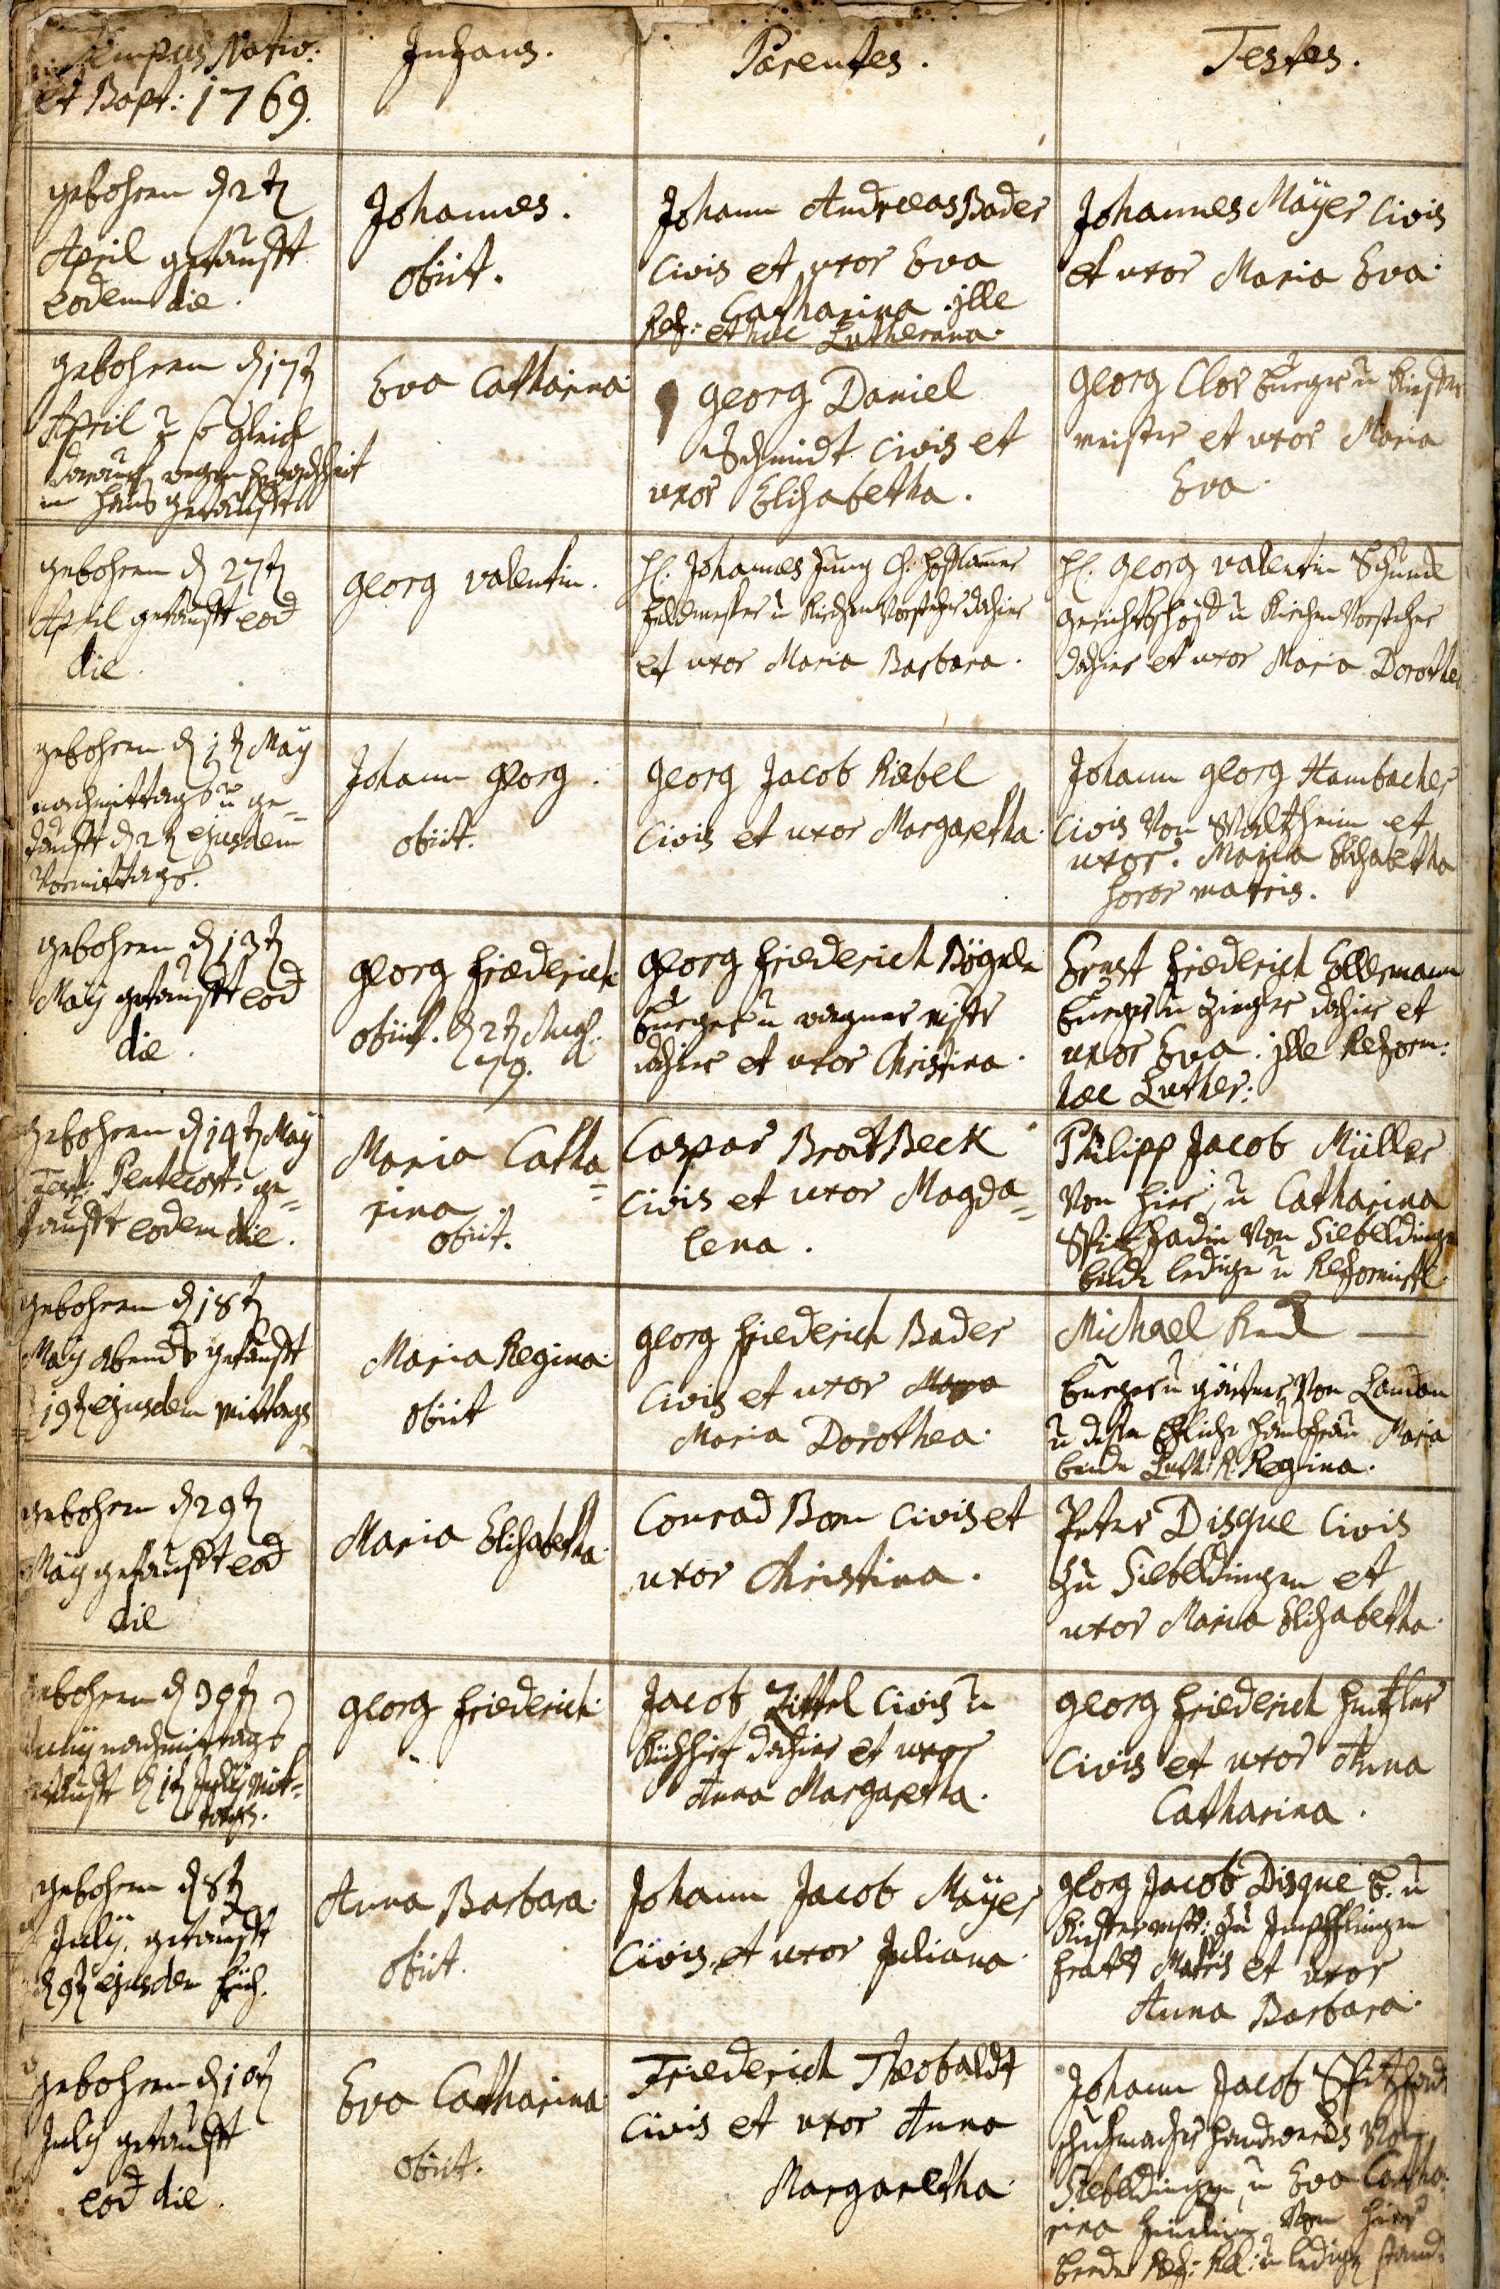 Tempus Nativ:
et Bapt: 1769.
Infans.
Parentes.
Testes.
gebohren d 2t
April getaufft
eodem die.
Johannes.
obiit.
Johann Andreas Bader
Civis et uxor Eva
Catharina. jlle
Ref: et hæc Lutherana.
Johannes Mäyer Civis
et uxor Maria Eva.
gebohren d 17t
April u so gleich
darauf wegen Schwachheit
im Haus getaufft
Eva Catharina
Georg Daniel
Schmidt Civis et
uxor Elisabetha.
Georg Clor burger u Kiefer
meister et uxor Maria
Eva.
gebohren d 27t
April getaufft eod
die.
Georg Valentin.
H. Johannes Jung Ch. Hoffkammer
feldmesser u Kirchen Vorsteher dahier
et uxor Maria Barbara.
H. Georg Valentin
u Kirchen Vorsteher
dahier et uxor Maria Dorothea
gebohren d 1t May
nachmittags u ge=
taufft d 2t ejusdem
Vormittags.
Johann Georg.
obiit.
Georg Jacob Kæbel
Civis et uxor Margaretha.
Johann Georg Hambacher
Civis Von Waltzheim et
uxor. Maria Elisabetha
soror matris.
gebohren d 13t
May getaufft eod
die.
Georg Friederich
obiit. d 2t
Georg Friederich Bögele
burger u wagner mstr
dahier et uxor Christina.
Ernst Friederich Collemann
burger u Ziegler dahier et
uxor Eva. jlle Reform:
hæc Luther:
gebohren d 14t May
Fest: Pentecost: ge=
taufft eodem die.
Maria Catha=
rina.
obiit.
Caspar BrodtBeck
Civis et uxor Magda=
lena.
Philipp Jacob Müller
Von hier, u Catharina
Von Siebeldingen
beide ledige u Reformirt
gebohren d 18t
May abends getaufft
19t ejusdem Mittags
Maria Regina.
obiit
Georg Friederich Bader
Civis et uxor
Maria Dorothea.
Michael
burger u gärtner Von Landau
u dessen Ehliche Hausfrau Maria
beide Luth: R. Regina.
gebohren d 29t
May getaufft eod
die
Maria Elisabetha.
Conrad Bom Civis et
uxor Christina.
Peter Disque Civis
zu Siebeldingen et
uxor Maria Elisabetha.
gebohren d 30t
Juny nachmittags
getaufft d 1t July Mit=
tags.
Georg Friederich.
Jacob Zittel Civis u
Kuhhirt dahier et uxor
Anna Margaretha.
Georg Friederich
Civis et uxor Anna
Catharina.
gebohren d 8t
July. getaufft
d 9t ejusdem früh.
Anna Barbara.
obiit.
Johann Jacob Mäyer
Civis et uxor Juliana.
Georg Jacob Disque b. u
Kiefermstr: zu Impfflingen
frater Matris et uxor
Anna Barbara.
gebohren d 10t
July getaufft
eod die.
Eva Catharina.
obiit.
Friederich Theobaldt
Civis et uxor Anna
Margaretha.
Johann Jacob
schuhmacher handwercks Von
Siebeldingen, u Eva Catha=
rina Von hier
beede Ref: Rel: u ledigen stands